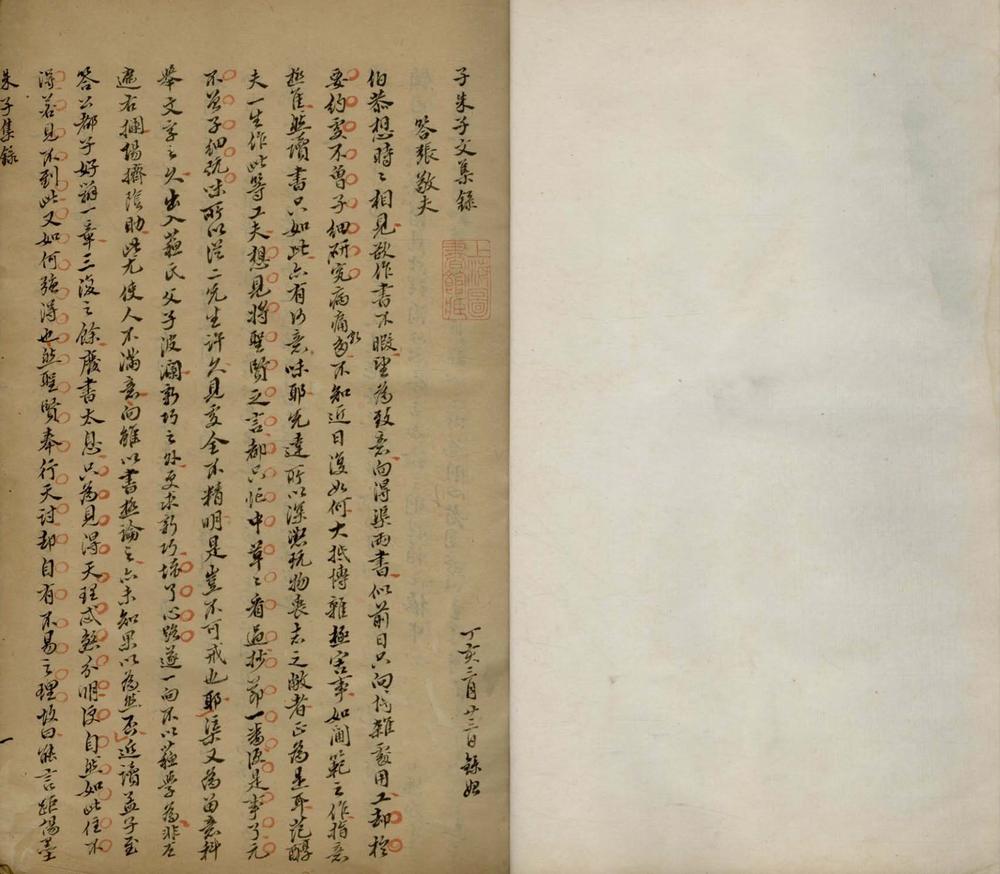 子朱子文集錄
丁亥三月廿三日錄起
上海圖書館藏
答張敬夫
伯恭想時々相見欲作書不暇望為致意向得渠兩書似前日只向博雜處用工却於
要約處不曾子細研究病痛頗多不知近日復如何大抵博雜極害事如閫範之作指意
極佳然讀書只如此亦有何意味耶先達所以深懲玩物喪志之敝者正為是耳范醇
夫一生作此等工夫想見將聖賢之言都只忙中草々看過抄節一番便是事了元
不曾子細玩味所以從二先生許久見處全不精明是豈不可戒也耶渠又為留意科
舉文字之久出入蘇氏父子波瀾新巧之外更求新巧壞了心路遂一向不以蘇學為非左
遮右攔陽擠陰助此尤使人不滿意向雖以書極論之亦未知果以為然否近讀孟子至
答公都子好辯一章三復之餘廢書太息只為見得天理忒煞分明便自然如此住不
得若見不到此又如何強得也然聖賢奉行天討却自有不易之理故曰能言距楊墨
朱子集錄
一